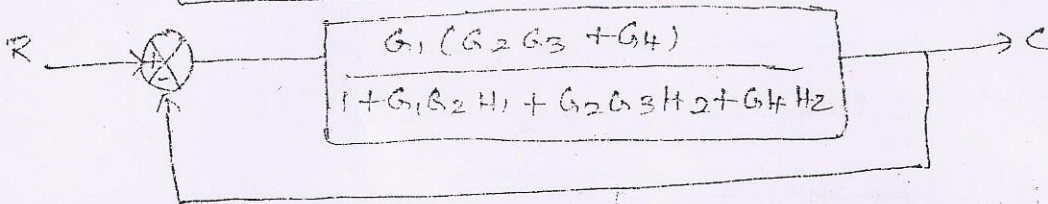 G1(G2G3 + G4)
R + - C
1 + G1G2H1 + G2G3H2 + G4H2